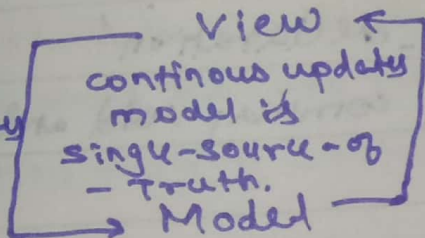 View
continous updates
model is
single-source-of
- Truth.
Model